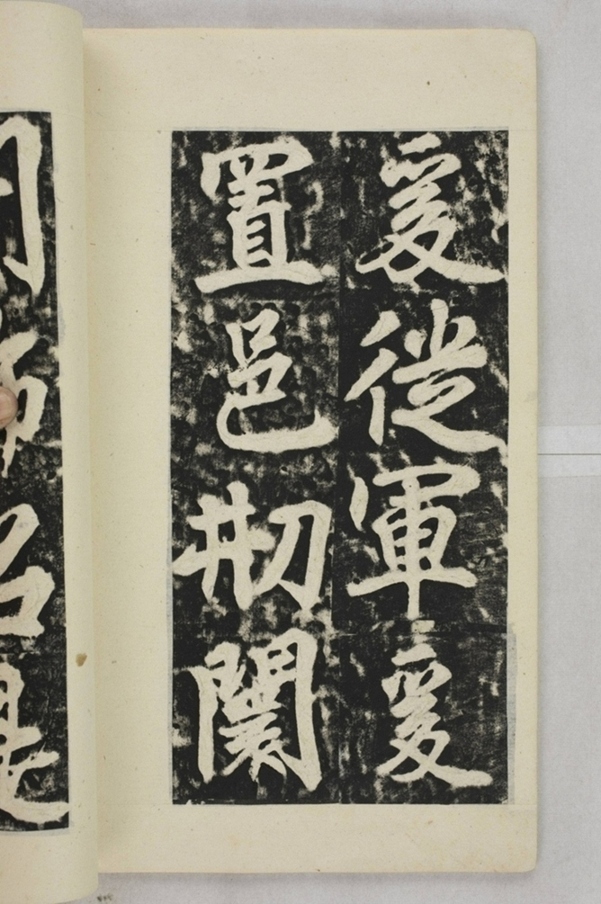 爰從軍爰
置邑刱關